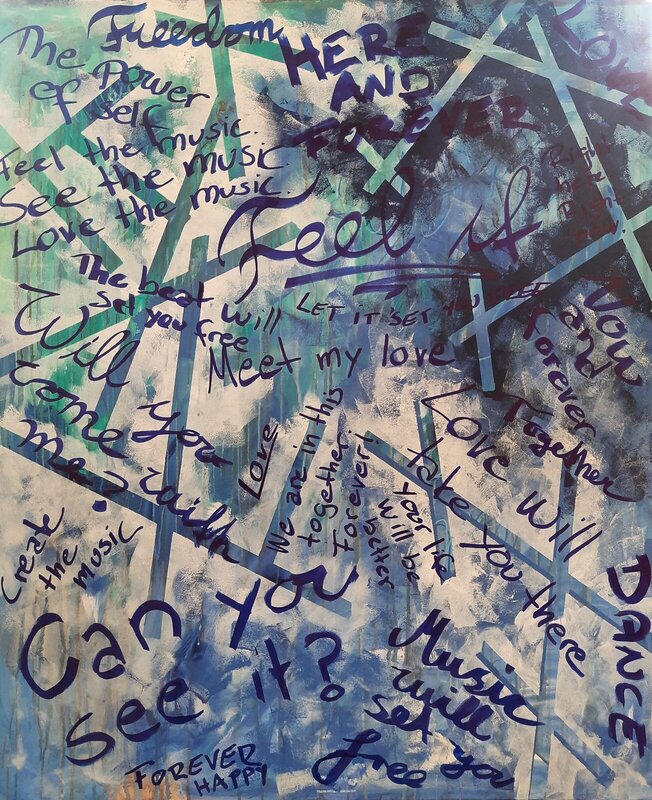 The Freedom
of Power
of Self
Feel the music.
See the music
Love the music.
HERE
AND
FOREVER
LOVE
Feel it
The beat will
set you free
LET IT SET YOU
Meet my love
Now
and
Forever
Together
Will
you
come with
me?
Love
We are in this
together
Forever!
Your life
will be
better
Love will
take you there
Create
the
music
Can you
see it?
DANCE
Music
will
set you
free
FOREVER
HAPPY